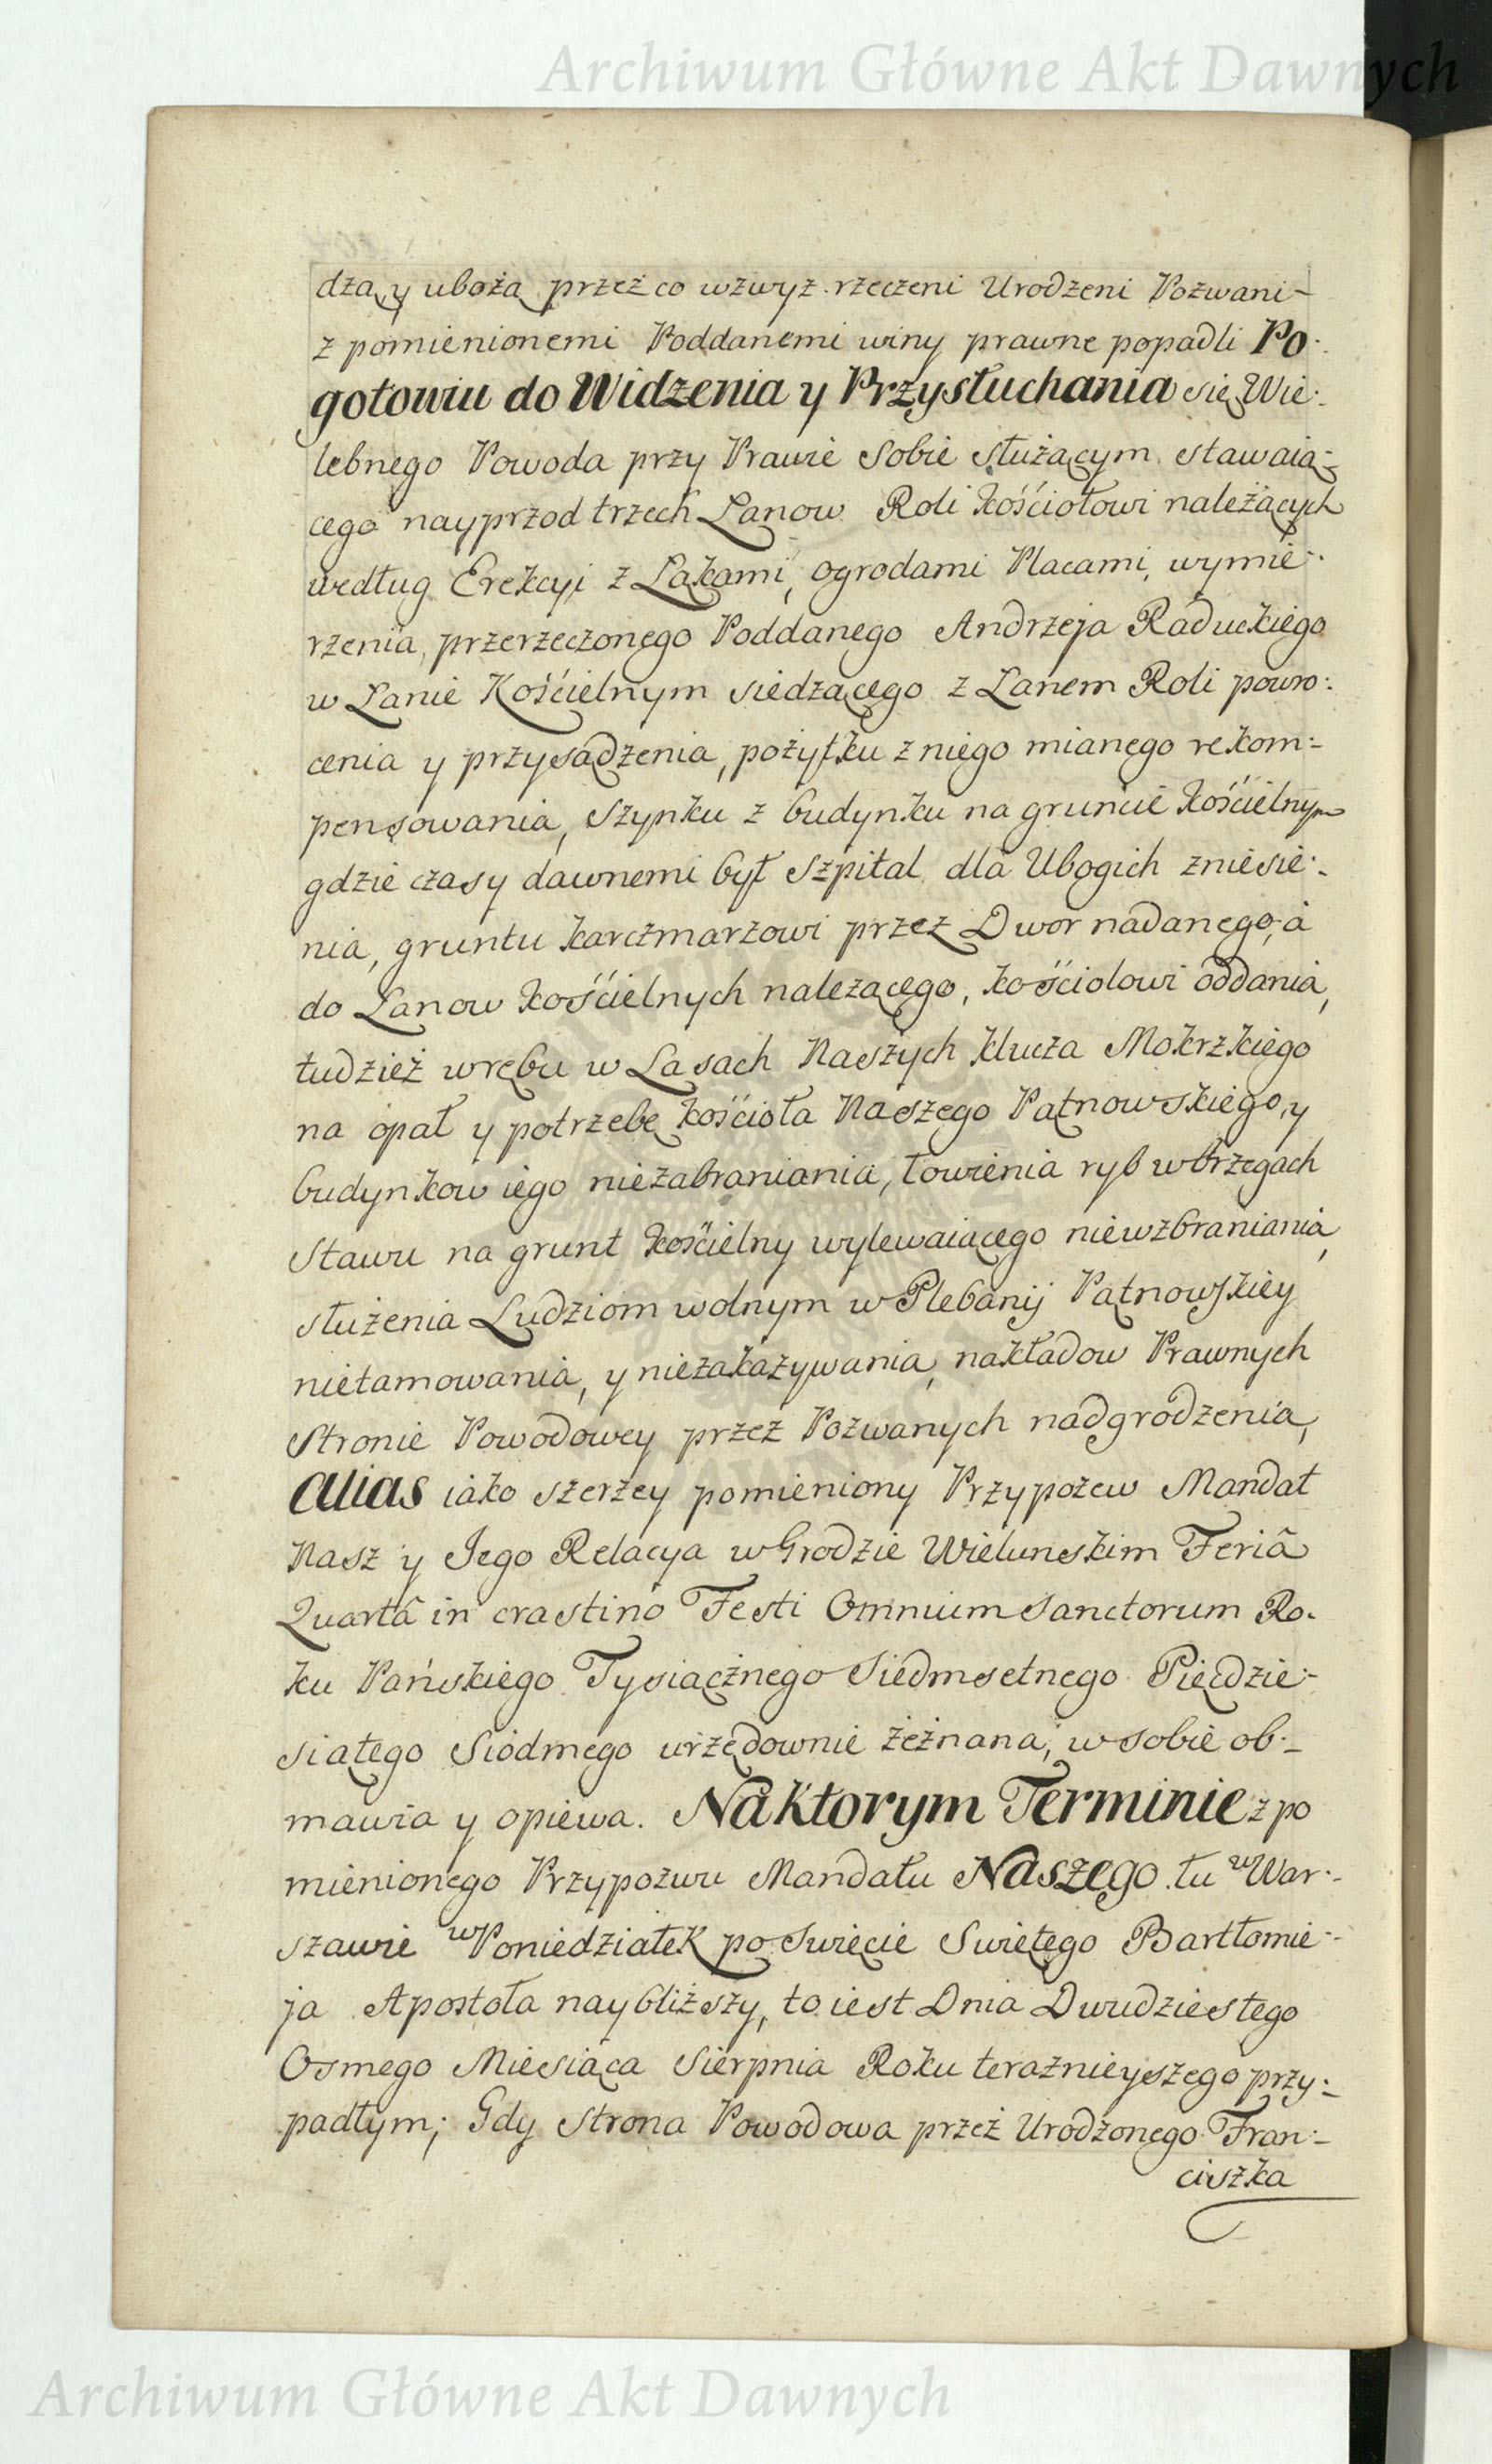 Archiwum Główne Akt Dawnych
dzą y ubożą przez co wzwyż rzeczeni Urodzeni Pozwani-
z pomienionemi Poddanemi winy prawne popadli Po-
gotowiu do Widzenia y Przysłuchania się Wie-
lebnego Powoda przy Prawie sobie służącym stawaią-
cego nayprzod trzech Łanow Roli kościołowi należących
według Erekcyi z Łąkami, ogrodami Placami, wymie-
rzenia, przerzeczonego Poddanego Andrzeja Raduckiego
w Łanie Kościelnym siedzącego z Łanem Roli powro-
cenia y przysądzenia, pożytku z niego mianego rekom-
pensowania, szynku z budynku na gruncie kościelnym
gdzie czasy dawnemi był szpital dla Ubogich zniesie-
nia, gruntu karczmarzowi przez Dwor nadanego, a
do Łanow kościelnych należącego, kościołowi oddania,
tudzież wrębu w Lasach Naszych klucza Mokrzkiego
na opał y potrzebę kościoła Naszego Pątnowskiego, y
budynkow iego niezabraniania, łowienia ryb w brzegach
stawu na grunt kościelny wylewaiącego niewzbraniania,
służenia Ludziom wolnym w Plebanij Pątnowskiey
nietamowania, y niezakazywania, nakładow Prawnych
stronie Powodowey przez Pozwanych nadgrodzenia,
alias iako szerzey pomieniony Przypozew Mandat
Nasz y Jego Relacya w Grodzie Wieluneskim Feriâ
Quartâ in crastino Festi Omnium Sanctorum Ro-
ku Pańskiego Tysiącznego Siedmsetnego Pięcdzie-
siątego Siodmego urzędownie zeznana, w sobie ob-
mawia y opiewa. Na ktorym Terminie z po
mienionego Przypozwu Mandatu Naszego tu w War-
szawie w Poniedziałek po Swięcie Swiętego Bartłomie-
ja Apostoła naybliższy, to iest Dnia Dwudziestego
Osmego Miesiąca Sierpnia Roku teraznieyszego przy-
padłym; Gdy Strona Powodowa przez Urodzonego Fran-
ciszka
Archiwum Główne Akt Dawnych